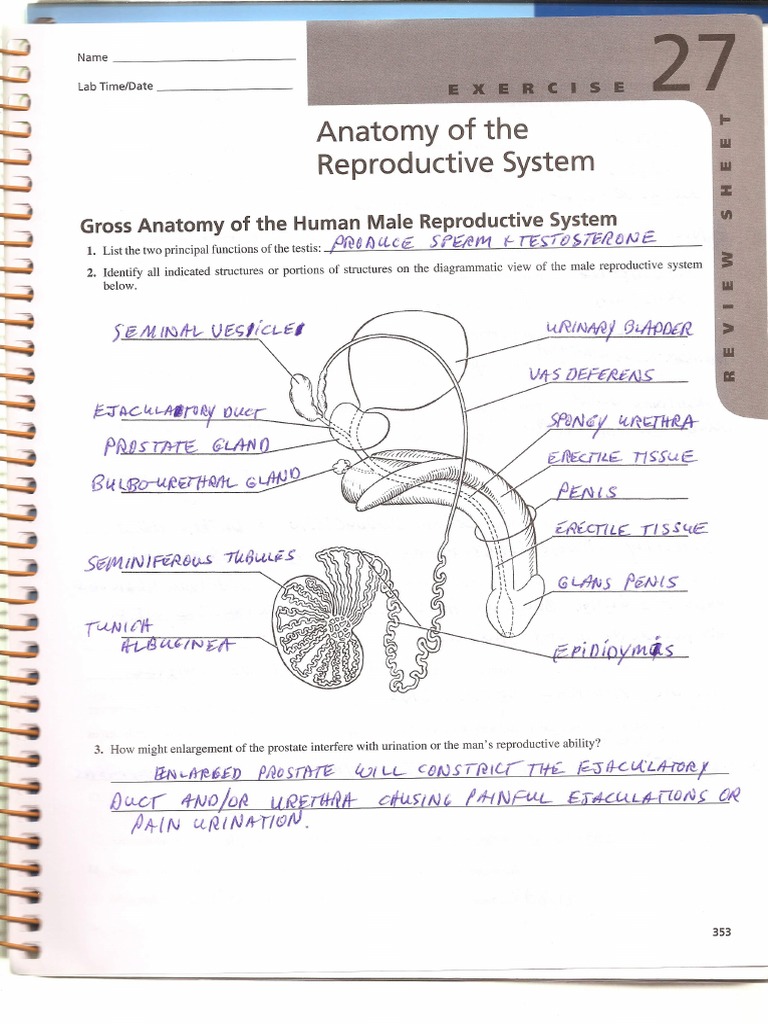 Name
Lab Time/Date
EXERCISE 27
REVIEW SHEET
Anatomy of the
Reproductive System
Gross Anatomy of the Human Male Reproductive System
1. List the two principal functions of the testis: PRODUCE SPERM + TESTOSTERONE
2. Identify all indicated structures or portions of structures on the diagrammatic view of the male reproductive system
below.
SEMINAL VESICLE
URINARY BLADDER
VAS DEFERENS
EJACULATORY DUCT
SPONGY URETHRA
PROSTATE GLAND
ERECTILE TISSUE
BULBO-URETHRAL GLAND
PENIS
ERECTILE TISSUE
SEMINIFEROUS TUBULES
GLANS PENIS
TUNICA
ALBUGINEA
EPIDIDYMIS
3. How might enlargement of the prostate interfere with urination or the man's reproductive ability?
ENLARGED PROSTATE WILL CONSTRICT THE EJACULATORY
DUCT AND/OR URETHRA CAUSING PAINFUL EJACULATIONS OR
PAIN URINATION.
353